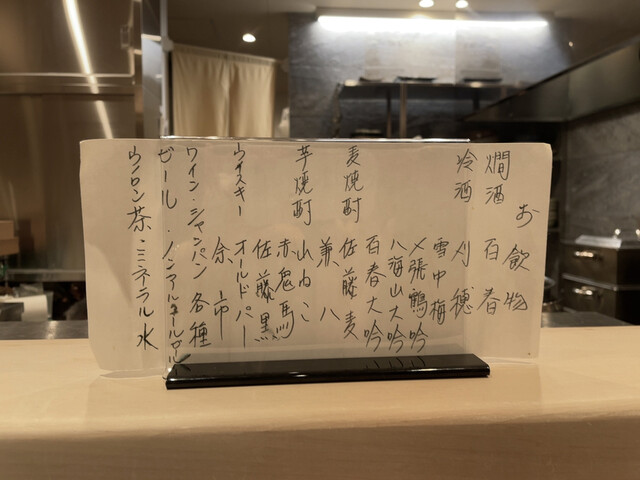 お飲物
燗酒 百春
冷酒 刈穂
雪中梅
〆張鶴吟
八海山大吟
百春大吟
麦焼酎 佐藤麦
兼八
芋焼酎 山ねこ
赤鬼馬
佐藤黒
ウイスキー オルドパー
余市
ワイン・シャンパン各種
ビール・ノンアルコールビール
ウーロン茶・ミネラル水